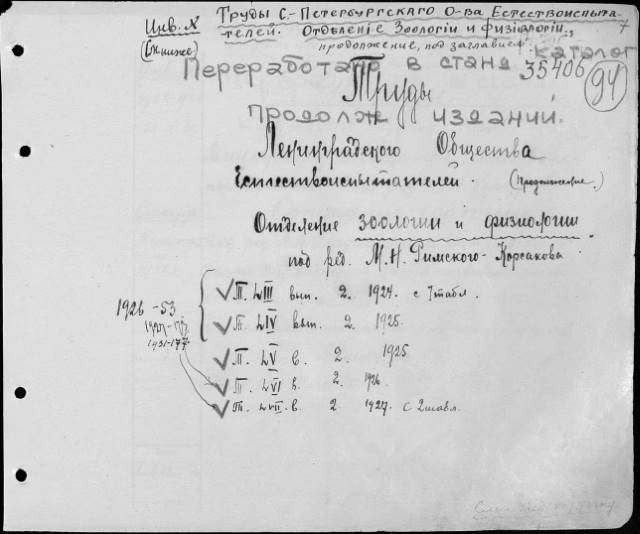 Инв. №
(См. ниже)
Труды С.-Петербургскаго О-ва Естествоиспыта-
телей. Отдѣленіе Зоологіи и физіологіи,
продолжение, под заглавием:
Переработано в стан. каталог
35406
94
Труды
продолж изданий.
Ленинградского Общества
Естествоиспытателей.
(Продолжение.)
Отделение зоологии и физиологии.
под ред. М.Н. Римского-Корсакова
Т. LIII вып. 2. 1924. с 7 табл.
1926-53
Т. LIV вып. 2. 1925.
1931-177
Т. LV в. 2. 1925
Т. LVI в. 2. 1926.
Т. LVII. в. 2 1927. с 2 табл.